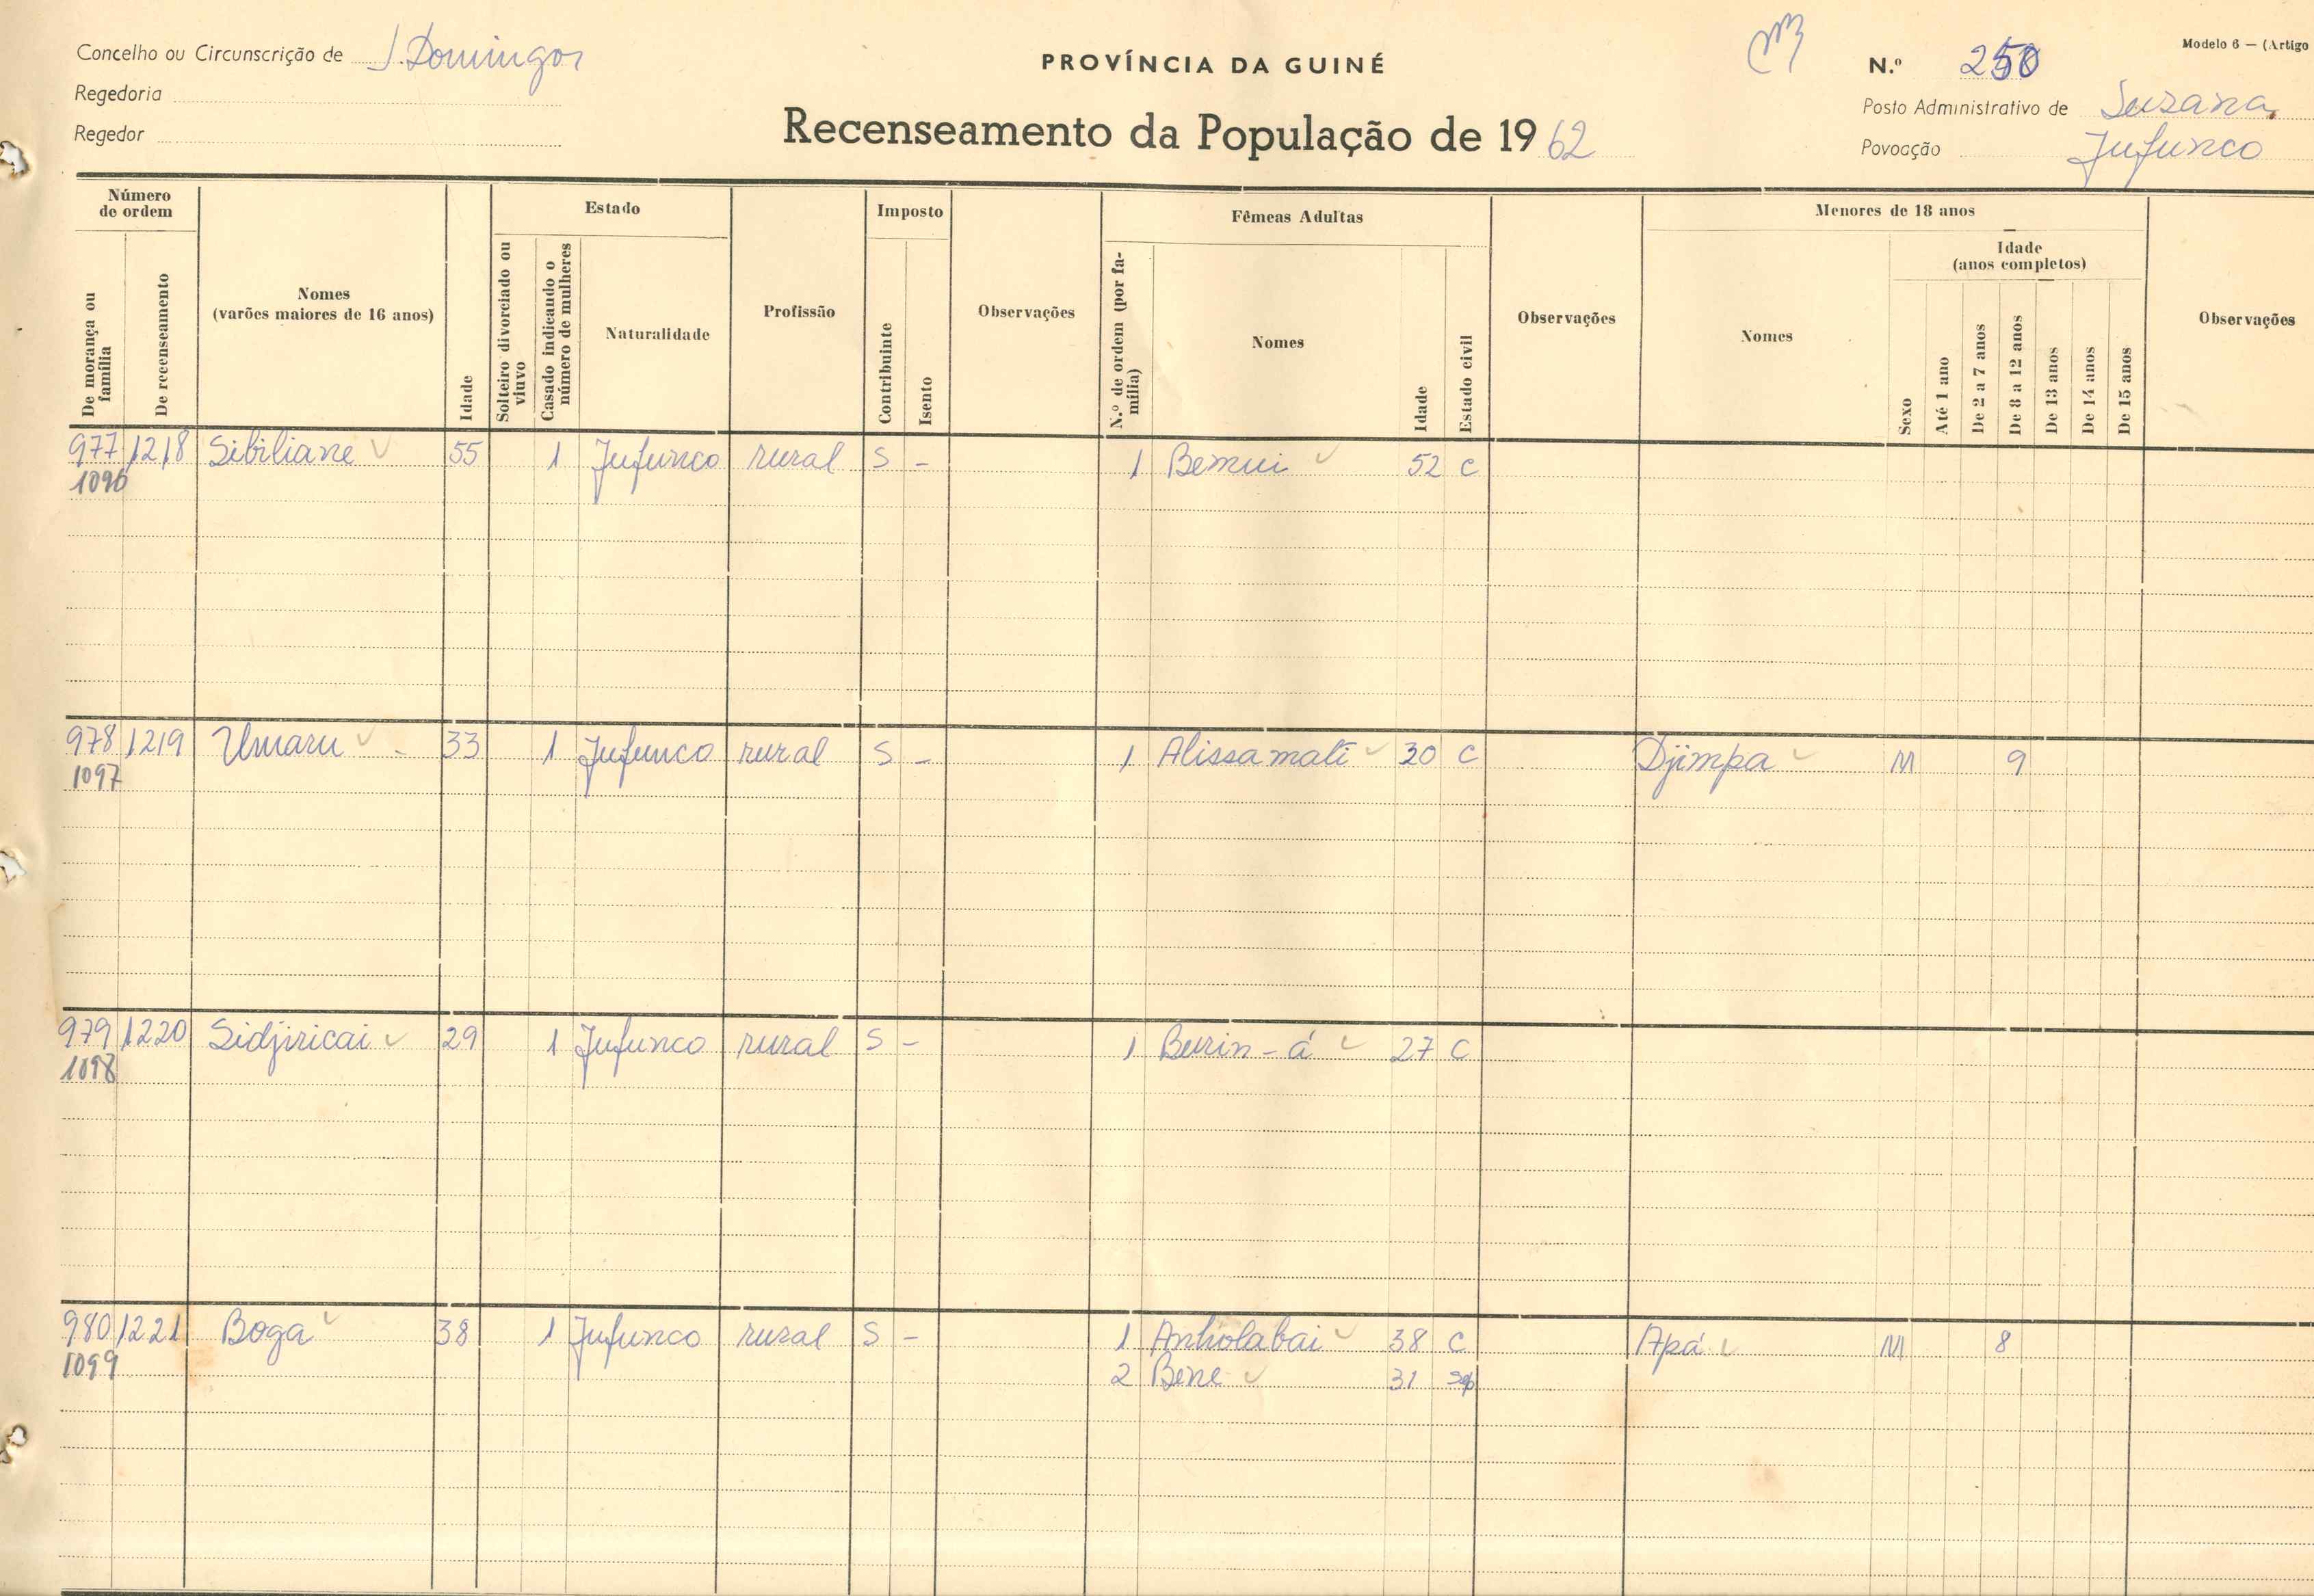 Concelho ou Circunscrição de S. Domingos
Regedoria
Regedor
PROVÍNCIA DA GUINÉ
Recenseamento da População de 1962
Modelo 6 — (Artigo
N.º 250
Posto Administrativo de Suzana
Povoação Jufunco
Número de ordem
De morança ou família
De recenseamento
Nomes
(varões maiores de 16 anos)
Idade
Estado
Solteiro divorciado ou viuvo
Casado indicando o número de mulheres
Naturalidade
Profissão
Imposto
Contribuinte
Isento
Observações
Fêmeas Adultas
N.º de ordem (por família)
Nomes
Idade
Estado civil
Observações
Menores de 18 anos
Nomes
Sexo
Idade
(anos completos)
Até 1 ano
De 2 a 7 anos
De 8 a 12 anos
De 13 anos
De 14 anos
De 15 anos
Observações
977 1218 Sibiliane 55 1 Jufunco rural S - 1 Bemui 52 C
1096
978 1219 Umaru - 33 1 Jufunco rural S - 1 Alissamati 30 C Djimpa M 9
1097
979 1220 Sidjiricai 29 1 Jufunco rural S - 1 Burin-á 27 C
1098
980 1221 Boga 38 1 Jufunco rural S - 1 Anholabai 38 C Apá M 8
1099 2 Bene 31 sp